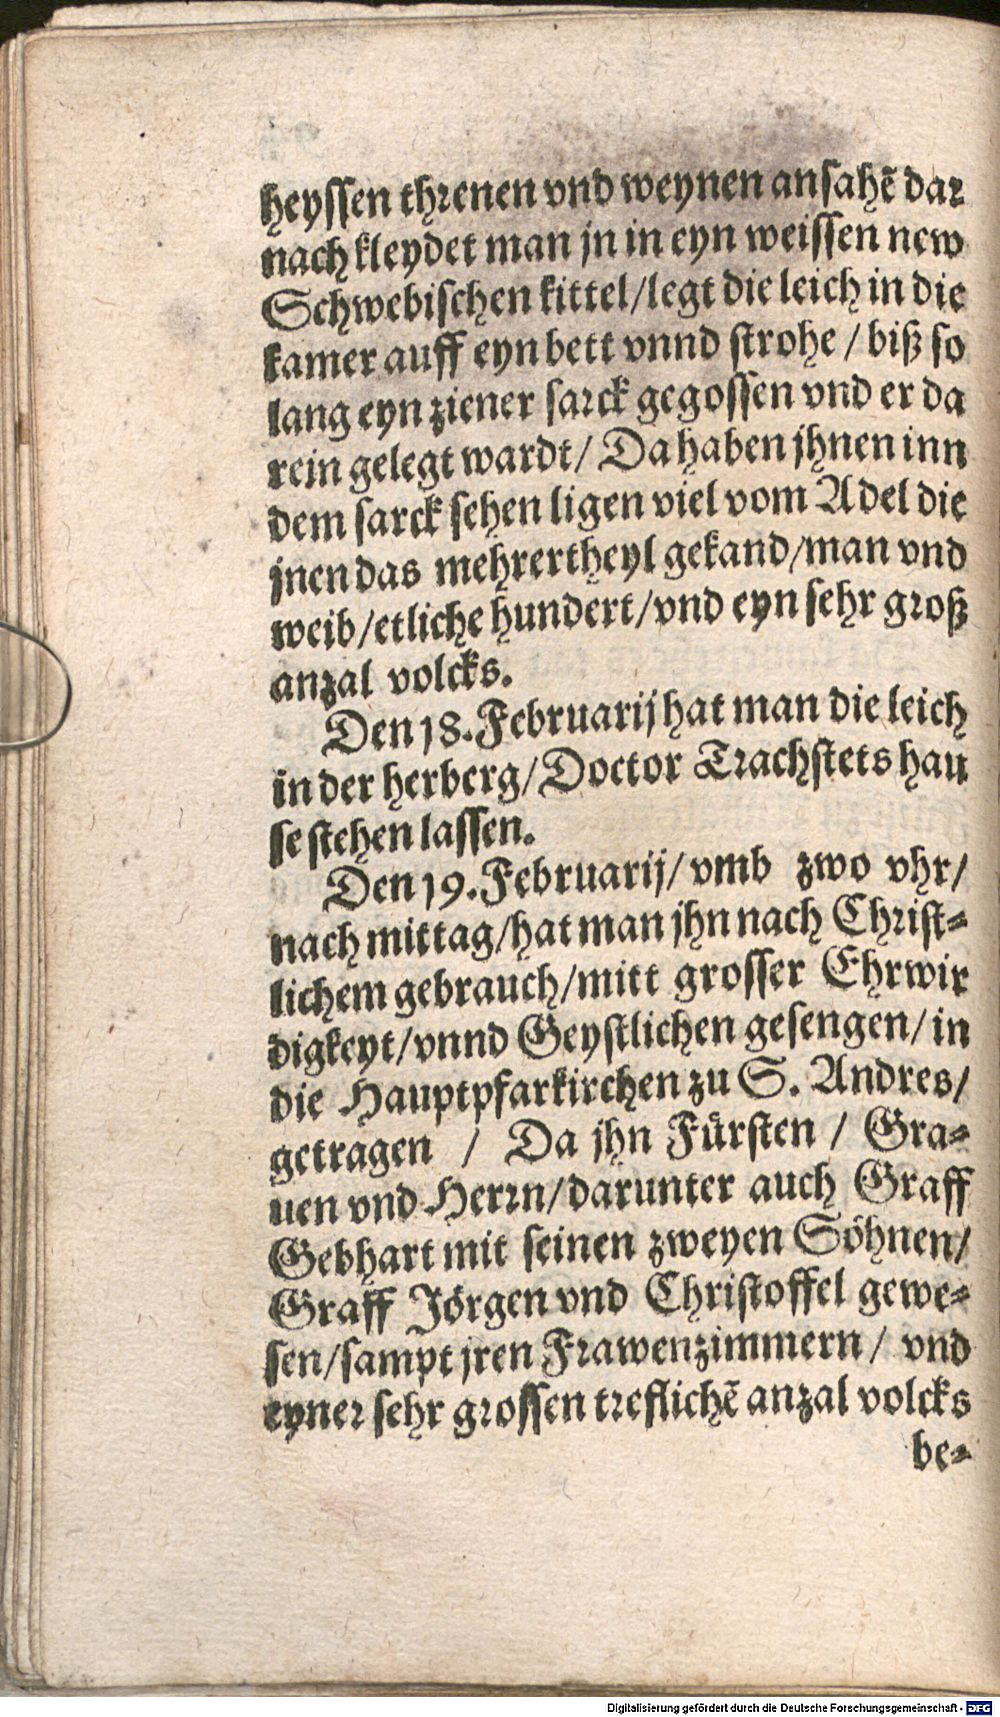 heyssen threnen vnd weynen ansahẽ dar
nach kleydet man jn in eyn weissen new
Schwebischen kittel/legt die leich in die
kamer auff eyn bett vnnd strohe / biß so
lang eyn ziener sarck gegossen vnd er da
rein gelegt wardt/ Da haben jhnen inn
dem sarck sehen ligen viel vom Adel die
jnen das mehrertheyl gekand/man vnd
weib/etliche hundert/vnd eyn sehr groß
anzal volcks.
Den 18. Februarij hat man die leich
in der herberg/Doctor Trachstets hau
se stehen lassen.
Den 19. Februarij/ vmb zwo vhr/
nach mittag/hat man jhn nach Christ⸗
lichem gebrauch/mitt grosser Ehrwir
digkeyt/vnnd Geystlichen gesengen/ in
die Hauptpfarkirchen zu S. Andres/
getragen / Da jhn Fürsten / Gra⸗
uen vnd Herrn/darunter auch Graff
Gebhart mit seinen zweyen Söhnen/
Graff Jörgen vnd Christoffel gewe⸗
sen/sampt jren Frawenzimmern / vnd
eyner sehr grossen treflichẽ anzal volcks
be⸗
Digitalisierung gefördert durch die Deutsche Forschungsgemeinschaft - DFG